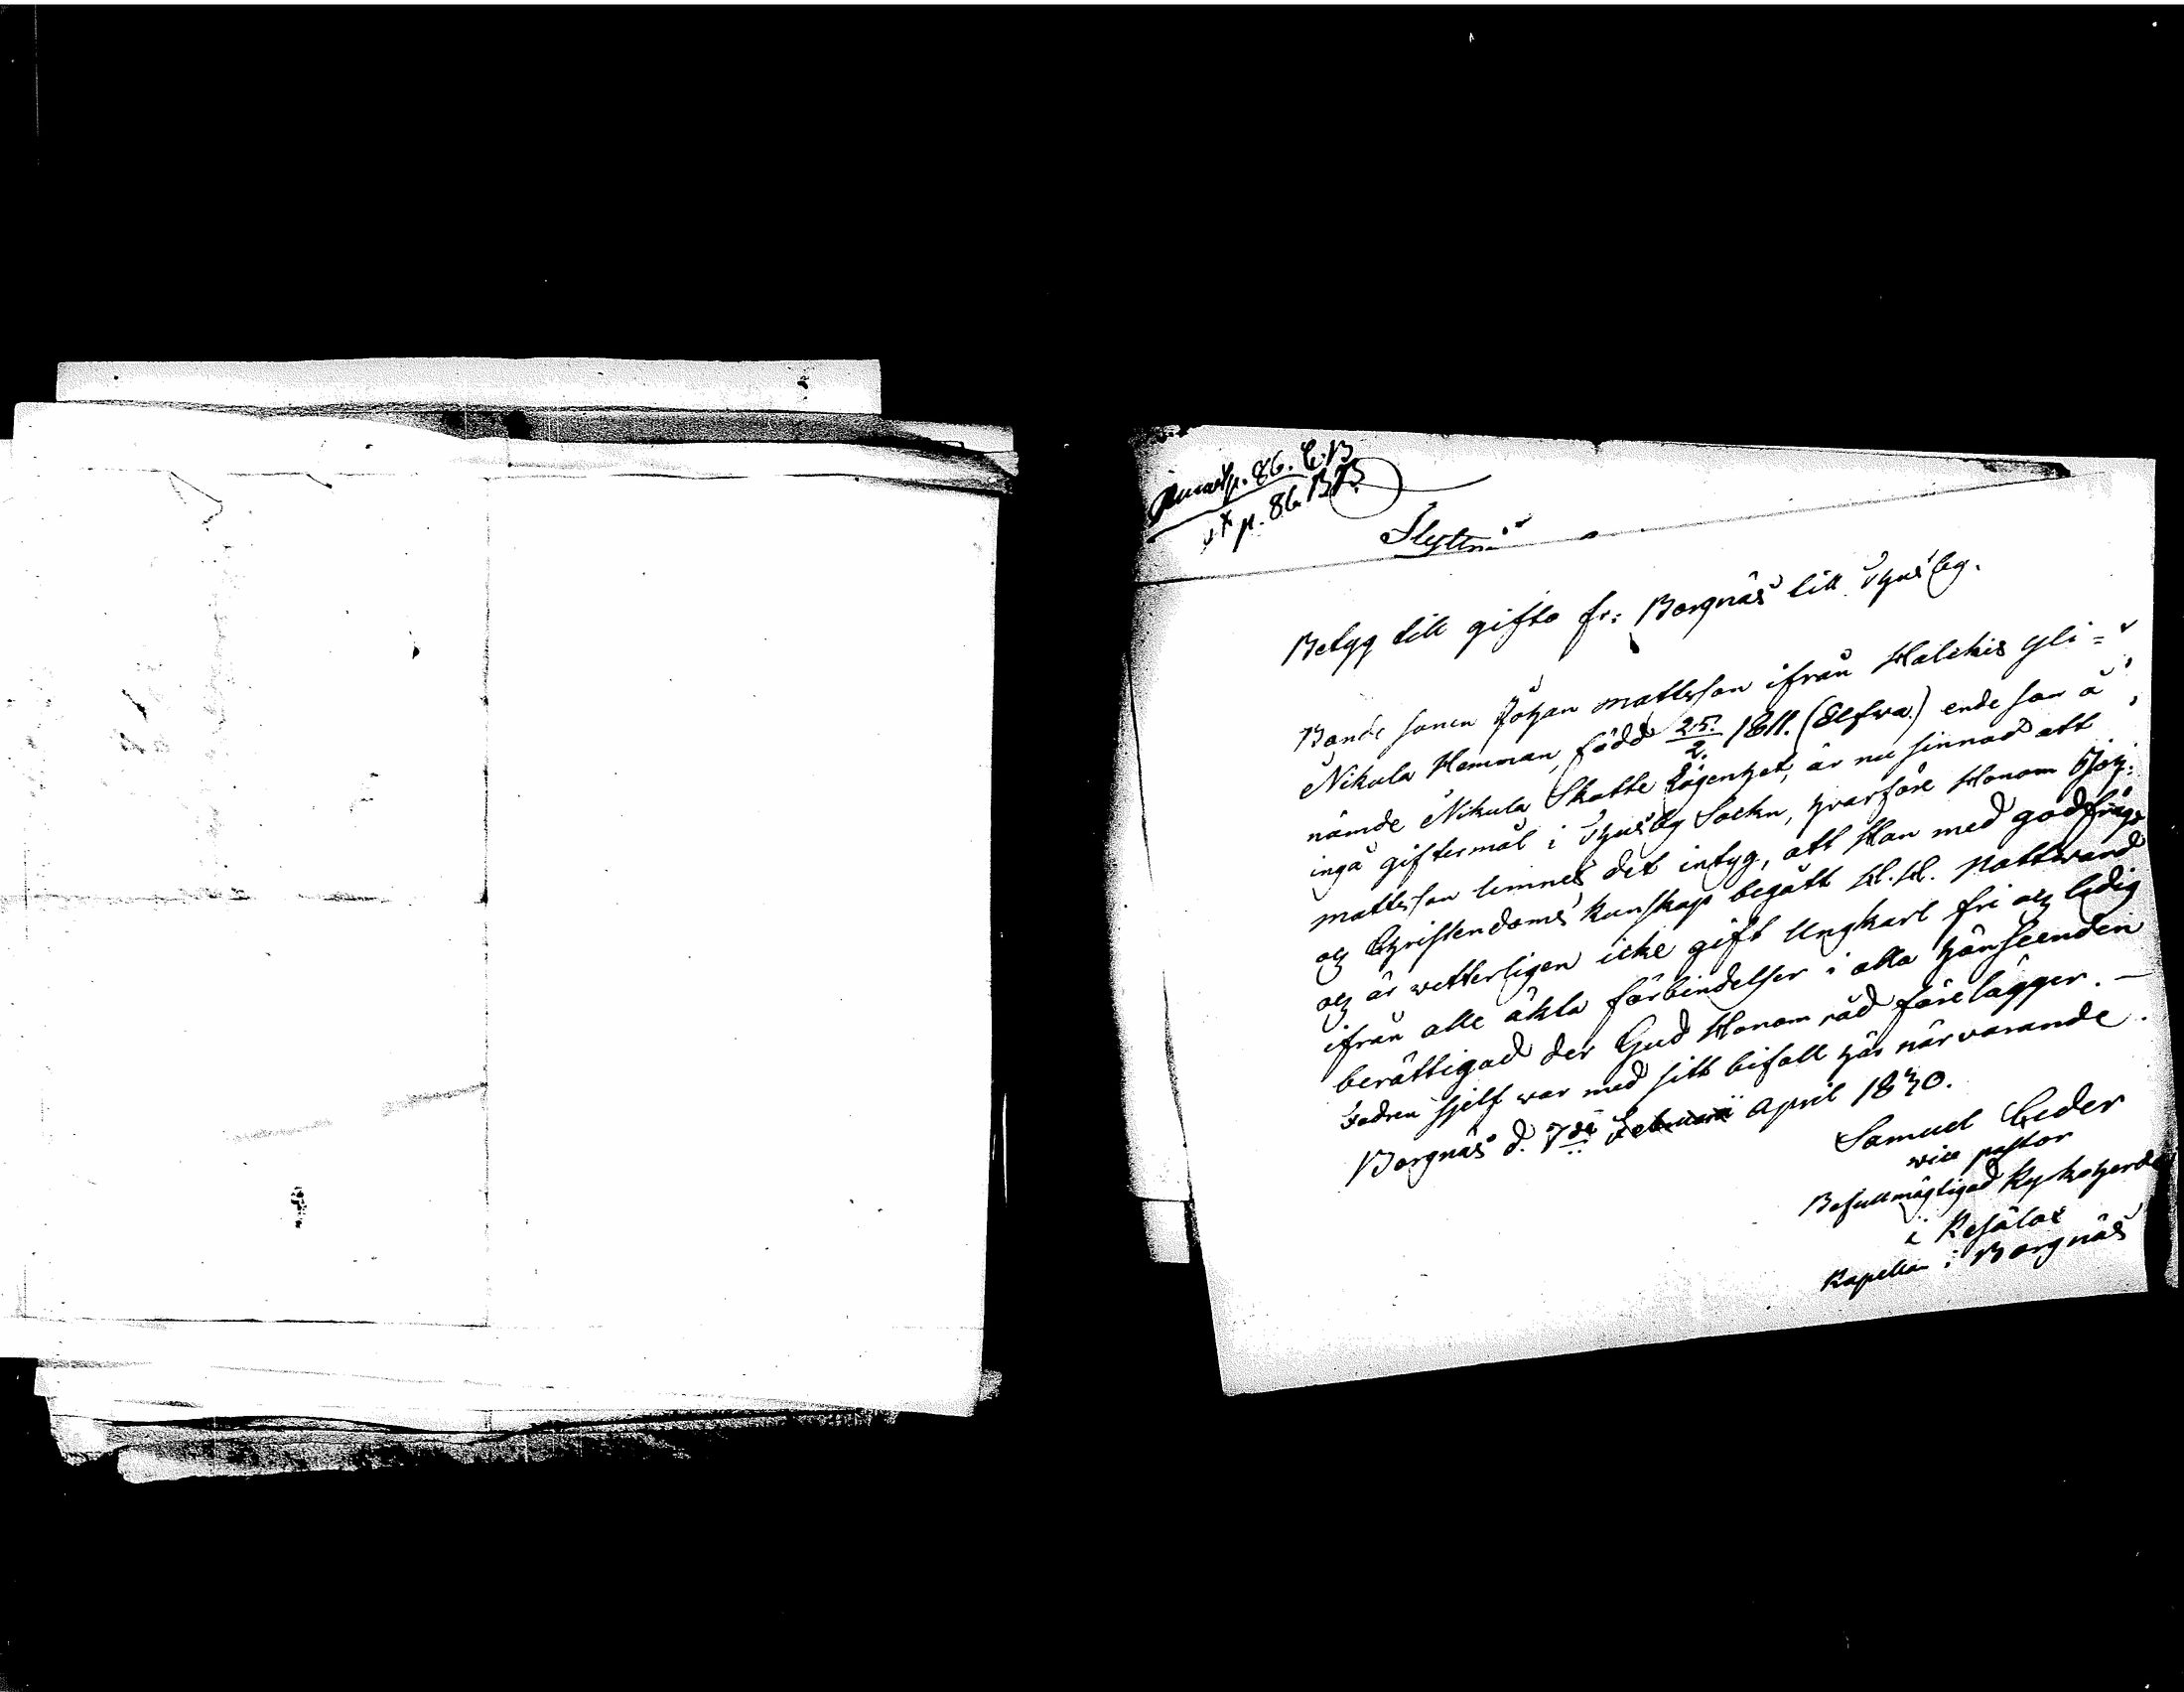 p. 86. C.B
p. 86. B.B.
Betyg till gifto fr: Borgnäs till
Bonde sonen Johan Mattsson ifrån Halckis Yli=
Nikula Hemman, född 25/2. 1811. (Elfva.) ende son å
nämde Nikula Skatte Lägenhet, är nu sinnad att
ingå giftermål i Sockn, hvarföre Honom Joh:
Mattsson lemnes det intyg, att Han med godkfrägd
och Christendoms kunskap begått H.H. Nattvard
och är wetterligen icke gift Ungkarl fri och ledig
ifrån alle äkta förbindelser i alla hänseenden
berättigad der Gud Honom råd förelägger. —
Fadren sjelf war med sitt bifall här närvarande.
Borgnäs d. 7de April 1830.
Samuel Ceder
vice pastor
Befullmägtigad Kyrkoherde
i Kesälax
Kapellan i Borgnäs